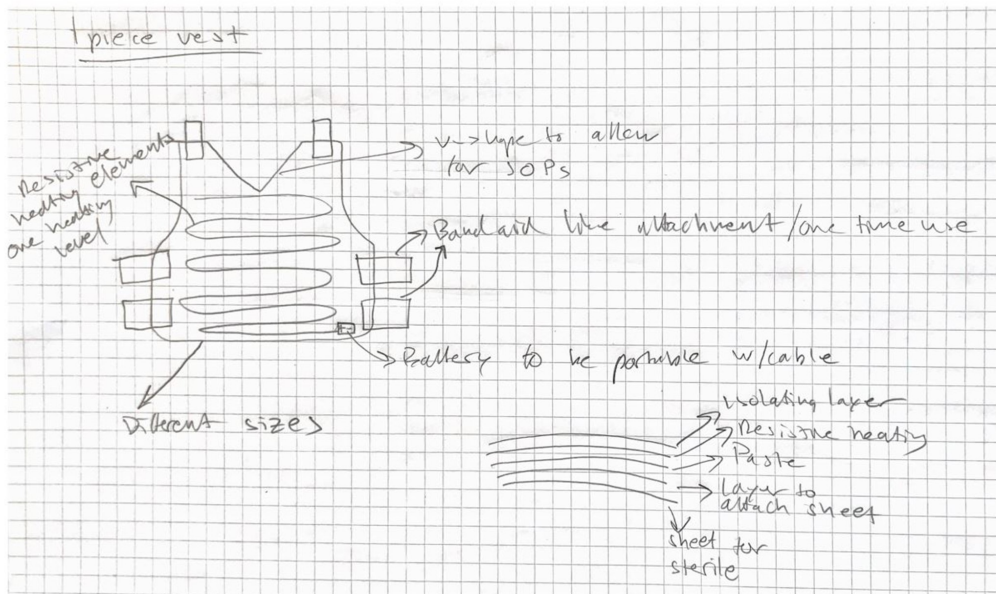 1 piece vest
Resistive
heating elements
one heating
level
V-shape to allow
for SOPs
Bandaid like attachment/one time use
Battery to be portable w/cable
Different sizes
isolating layer
Resistive heating
Paste
Layer to
attach sheet
sheet for
sterile